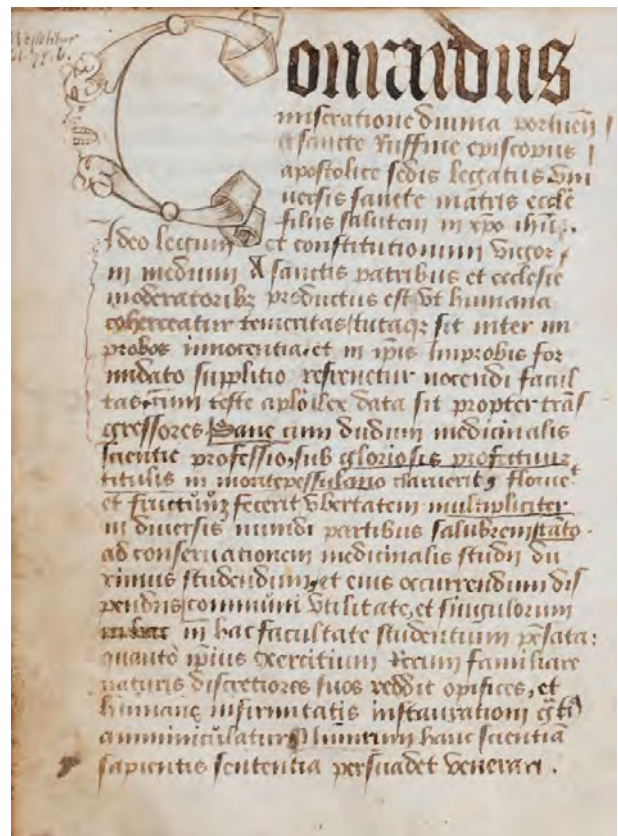 Conrardus
miseratione divina portueñ
et sancte Ruffine episcopus
apostolice sedis legatus Uni
versis sancte matris eccłe
filiis salutem in xpo ihũ.
Ideo legum et constitutionum vigor
in medium A sanctis patribus et ecclesie
moderatoribꝫ productus est, Vt humana
coherceatur temeritas, tutaqꝫ sit inter im
probos innocentia, et in ip̃is Improbis for
midato supplitio refrenetur nocendi facul
tas, cum teste ap̃lo lex data sit propter trãs
gressores. Sane cum dudum medicinalis
scientie professio, sub gloriosis profectuũ
titulis in montepessulano claruerit, floruet
et fructuum fecerit vbertatem multipliciter
in diversis mundi partibus salubrem, stato
ad conservationem medicinalis studii du
ximus studendum, et eius occurrendum dis
pendiis communi Vtilitate, et singulorum
in hac facultate studentium pẽsata:
quanto ip̃ius exercitium Rerum familiare
naturis discretiores suos reddit opifices, et
humane infirmitatis instaurationi
amminiculatur, hanc scientiã
sapientis sententia persuadet venerari.